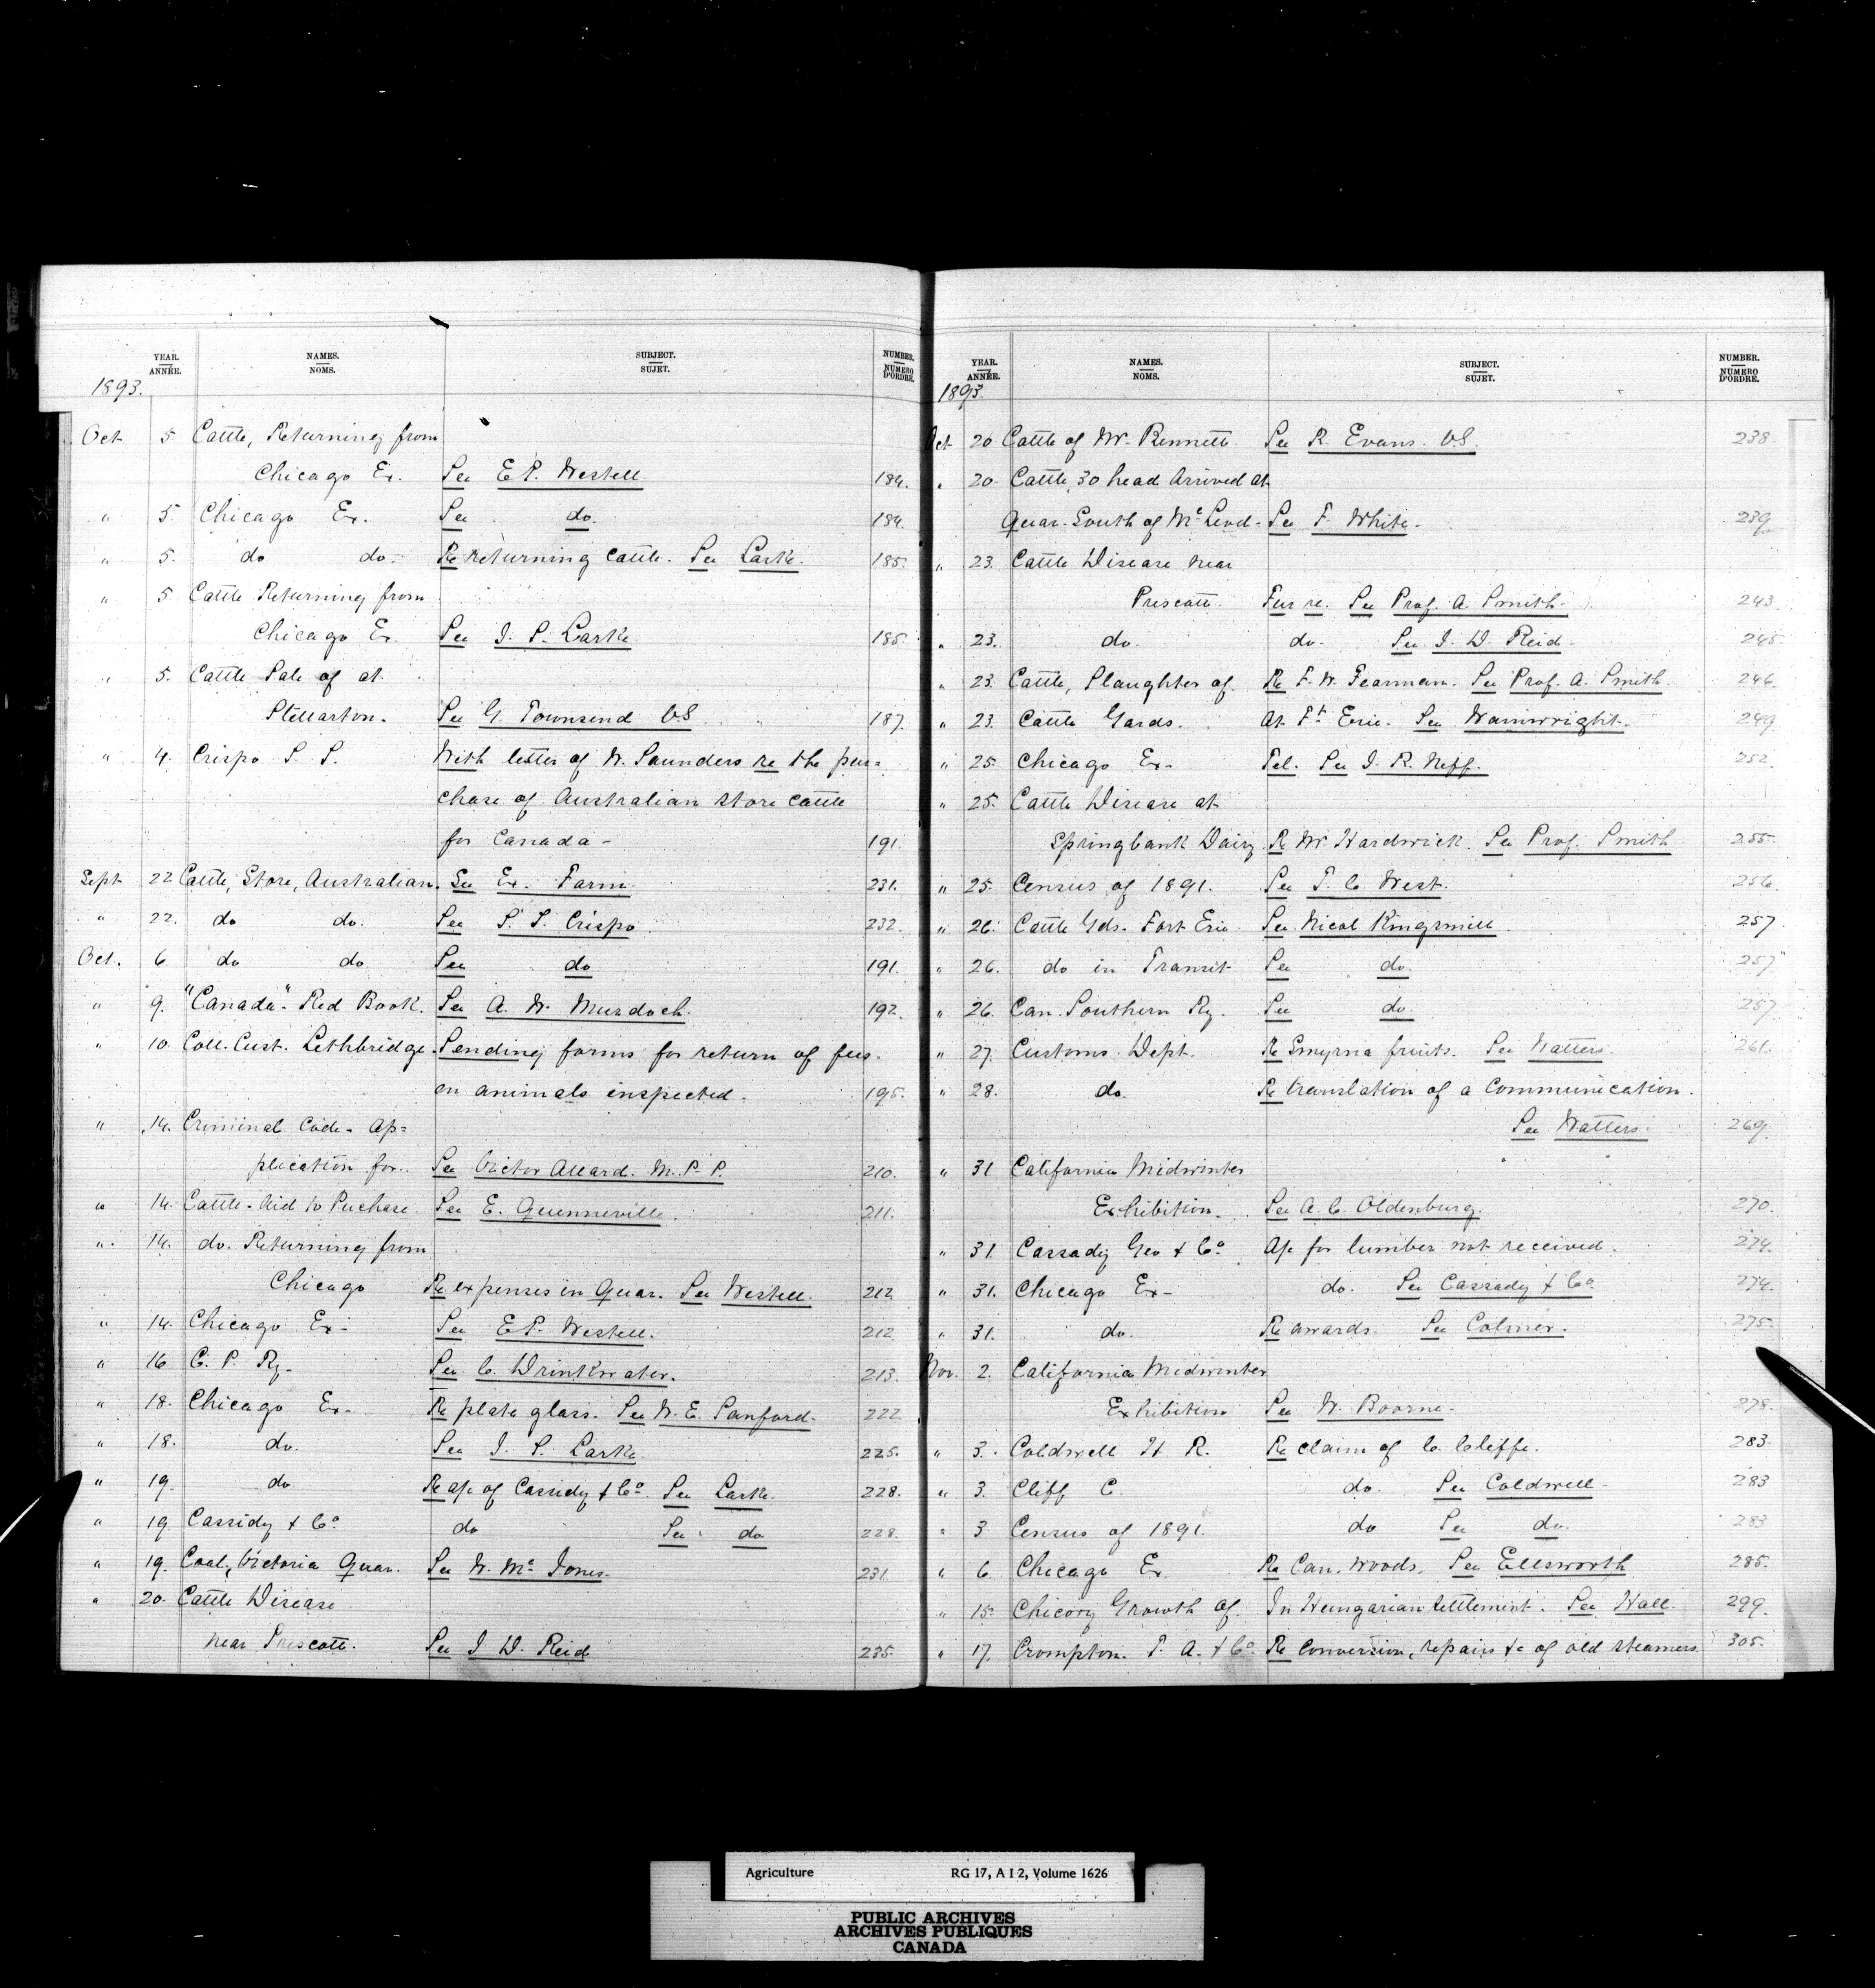 YEAR. ANNÉE. NAMES. NOMS. SUBJECT. SUJET. NUMBER. NUMÉRO D'ORDRE.
1893.
Oct 5 Cattle, Returning from
Chicago Ex. See E.P. Westell 184.
" 5. Chicago Ex. See do. 184.
" 5. do do- Re returning cattle. See Larke. 185.
" 5 Cattle Returning from
Chicago Ex. See J. S. Larke 185.
" 5. Cattle Sale of at
Stellarton. See G. Townsend VS. 187.
" 4. Crispo S. S. With letter of W. Saunders re the pur=
chase of Australian store cattle
for Canada- 191.
Sept 22 Cattle, Store, Australian. See Ex. Farm 231.
" 22. do do. See S. S. Crispo 232.
Oct. 6 do do See do 191.
" 9. "Canada"- Red Book. See A. W. Murdoch. 192.
" 10 Coll. Cust. Lethbridge. Sending forms for return of fees.
on animals inspected. 195.
" 14. Criminal Code- Ap=
plication for. See Victor Allard. M.P.P. 210.
" 14. Cattle- Aid to Puchase See E. Quenneville. 211.
" 14. do. Returning from
Chicago Re expenses in Quar. See Westell. 212
" 14. Chicago Ex- See E.P. Westell. 212
" 16 C. P. Ry. See C. Drinkwater. 213.
" 18. Chicago Ex- Re plate glass. See W. E. Sanford- 222
" 18. do. See J. S. Larke 225.
" 19. do. Re a/c of Cassidy & Co. See Larke. 228.
" 19 Cassidy & Co. do See do 228.
" 19. Coal, Victoria Quar. See W. Mc Jones. 231.
" 20. Cattle Disease
near Prescott. See J D. Reid 235.
YEAR. ANNÉE. NAMES. NOMS. SUBJECT. SUJET. NUMBER. NUMÉRO D'ORDRE.
1893.
Oct 20 Cattle of W. Bennett. See R. Evans. VS. 238.
" 20 Cattle, 30 head Arrived at
Quar. South of McLeod- See F. White. 239
" 23. Cattle Disease near
Prescott Fur re. See Prof. A. Smith- 243
" 23. do. do. See J. D. Reid- 245
" 23. Cattle, Slaughter of. Re F. W. Fearman. See Prof. A. Smith. 246.
" 23. Cattle Yards. At Ft Erie- See Wainwright. 249
" 25. Chicago Ex- Tel. See J. R. Neff. 252.
" 25. Cattle Disease at
Springbank Dairy Re W. Hardwick. See Prof. Smith 255.
" 25. Census of 1891. See T. C. West. 256.
" 26. Cattle Yds. Fort Erie See Nicol Kingsmill 257.
" 26. do in Transit See do. 257
" 26. Can. Southern Ry. See do. 257
" 27. Customs. Dept. Re Smyrna fruits. See Watters. 261.
" 28. do. Re translation of a communication.
See Watters. 269.
" 31 California Midwinter
Exhibition. See A. C. Oldenburg. 270.
" 31 Cassady Geo & Co. A/c for lumber not received. 274.
" 31. Chicago Ex- do. See Cassady & Co 274.
" 31. do. Re awards. See Colmer. 275.
Nov. 2. California Midwinter
Exhibition See W. Boorne. 278.
" 3. Coldwell H. R. Re claim of C. Cliffe. 283
" 3. Cliff C. do. See Coldwell- 283
" 3 Census of 1891. do See do. 283
" 6 Chicago Ex. Re Can. Woods. See Ellsworth 285.
" 15. Chicory Growth of. In Hungarian Settlement. See Hall. 299.
" 17. Crompton. T. A. & Co. Re conversion, repairs &c of old steamers. 305.
Agriculture RG 17, A I 2, Volume 1626
PUBLIC ARCHIVES
ARCHIVES PUBLIQUES
CANADA